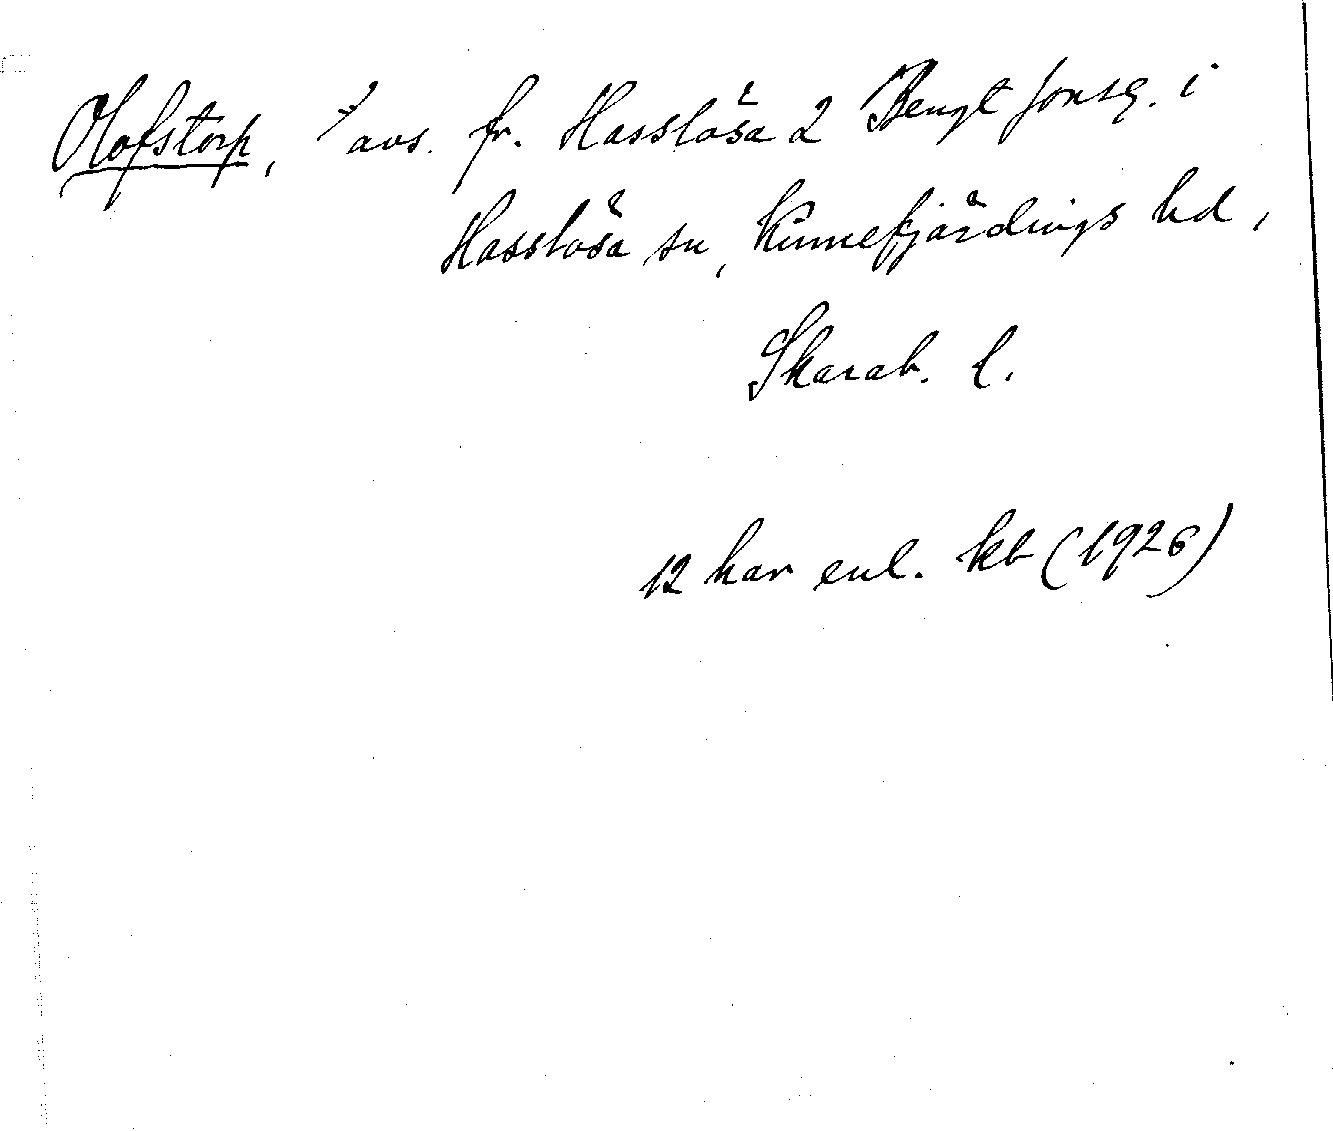 Olofstorp, avs. fr. Hasslösa 2 Bengt Jonsg. i
Hasslösa sn, Kinnefjärdings hd,
Skarab. l.
12 har enl. kb (1926)